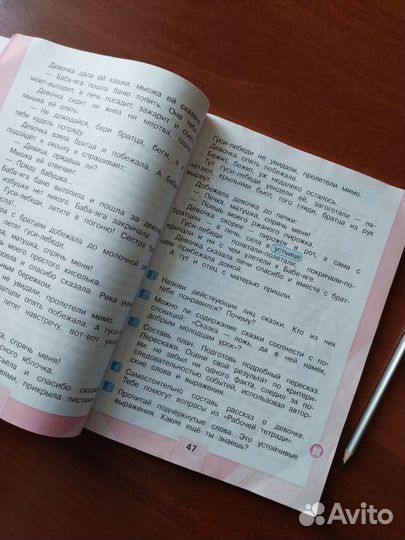 Девочка дала ей кашки, мышка ей сказала:
— Баба-яга пошла баню топить. Она тебя
моет-выпарит, в печь посадит, зажарит и съест
Девочка сидит ни жива ни мертва, плачет
мышка ей опять:
— Не дожидайся, бери братца, беги, а я
тебя кудель попряду.
Девочка взяла братца и побежала. А Баба
подойдёт к окошку и спрашивает:
— Девица, прядёшь ли?
Мышка ей отвечает:
— Пряду, бабушка...
Баба-яга баню вытопила и пошла за дево
избушке нет никого. Баба-яга закричала:
Гуси-лебеди, летите в погоню! Сестра
с братцем добежала до молочной
летят гуси-лебеди.
матушка, спрячь меня!
простого киселька.
и спасибо сказала. Река
бережком.
не увидали, пролетели мимо.
опять побежала. А
летят навстречу, вот-вот
спрячь меня!
лесного яблочка.
съела и спасибо
ветвями, прикрыла листами.
Гуси-лебеди не увидали, пролетели мимо.
Девочка опять побежала.
Бежит, бежит, уж недалеко осталось.
Тут гуси-лебеди увидели её, загоготали — на-
летают, крыльями бьют, того гляди, братца из рук
вырвут.
Добежала девочка до печки:
— Печка, матушка, спрячь меня!
— Поешь моего ржаного пирожка.
Девочка скорее — пирожок в рот, а сама с
братцем — в печь, села в устьице.
Гуси-лебеди полетали-полетали, покричали-по-
кричали и ни с чем улетели к Бабе-яге.
Девочка сказала печи спасибо и вместе с брат-
цем прибежала домой.
А тут и отец с матерью пришли.
1 Назови действующих лиц сказки. Кто из них
тебе понравился? Почему?
2 Можно ли содержание сказки соотнести с по-
словицей: «Сказка — ложь, да в ней намёк,
добрым молодцам урок»?
3 Составь план. Подготовь подробный пересказ.
Перескажи. Оцени свой результат по критери-
ям: не забыл ни одного факта, следил за по-
следовательностью событий, использовал автор-
ские слова и выражения.
4 Самостоятельно составь рассказ о девочке.
Тебе помогут вопросы из «Рабочей тетради».
5 Прочитай подчёркнутые слова. Это устойчивые
выражения. Какие ещё ты знаешь?
47
Avito